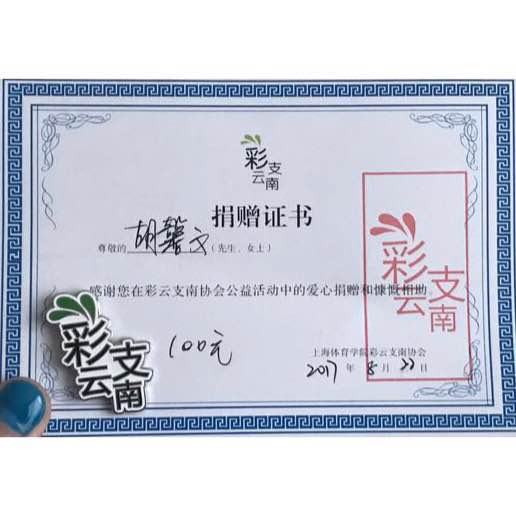 彩云支南
捐赠证书
尊敬的 胡馨文 (先生、女士)
感谢您在彩云支南协会公益活动中的爱心捐赠和慷慨相助。
100元
上海体育学院彩云支南协会
2017 年 8 月 23 日
彩云支南
彩云支南